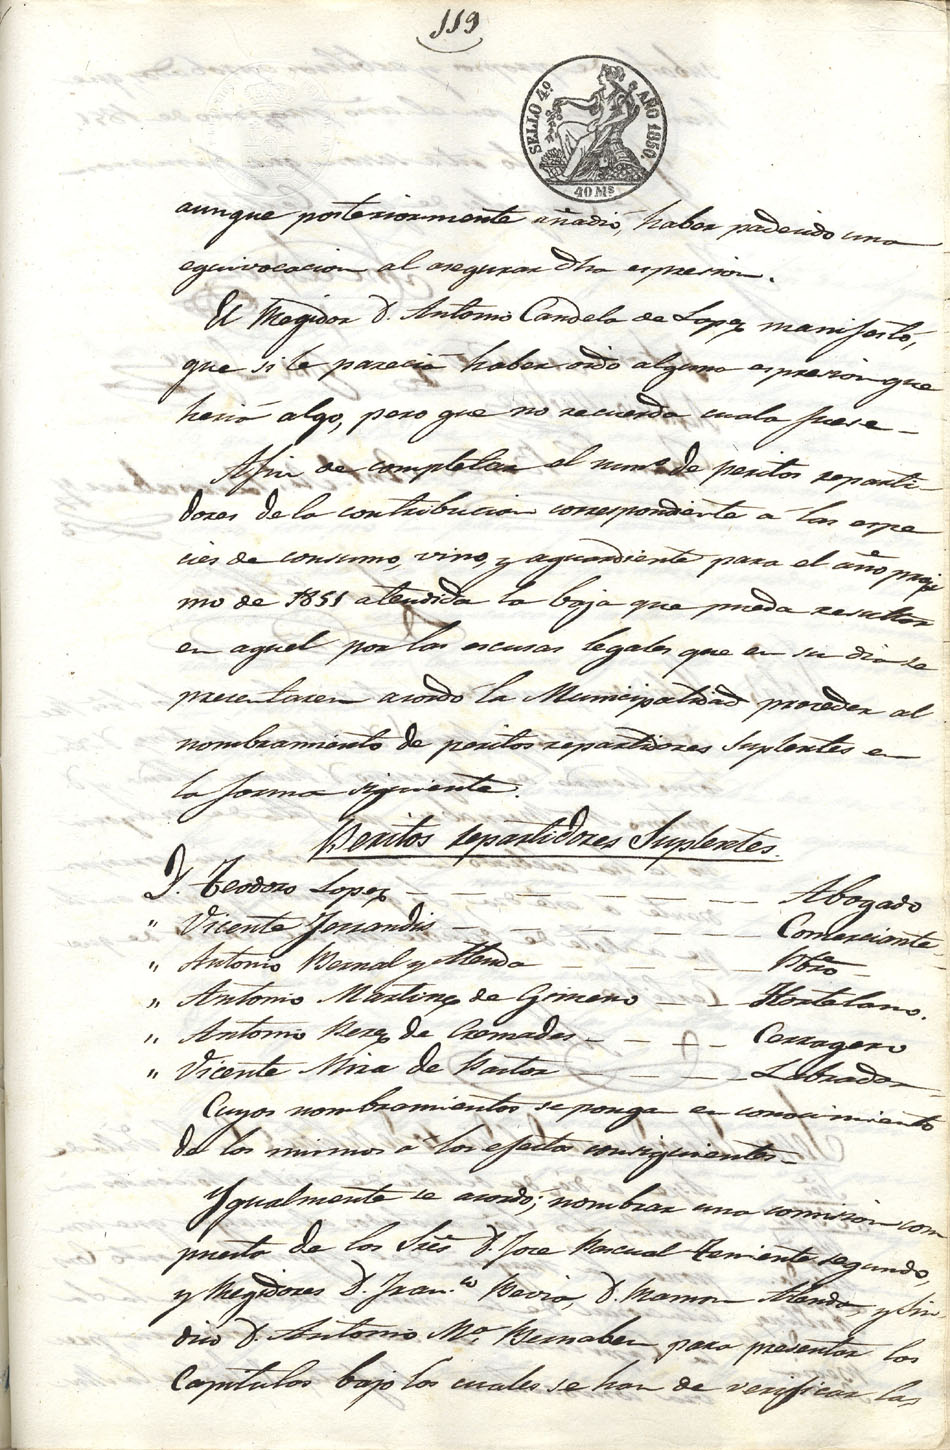 119
SELLO 4º AÑO 1850.
40 Ms
aunque posteriormente añadió, haber padecido una
equivocacion al asegurar dha espresion.
El Regidor D. Antonio Candela de Lopez manifestó,
que si le parecia haber oido alguna espresion que
heria algo, pero que no recuerda cuala fuese_
Afin de completar el numº de peritos reparti-
dores de la contribucion correspondiente á las espe
cies de consumo, vino, y aguardiente para el año proxi
mo de 1851 atendida la baja que pueda resultar
en aquel por las escusas legales que en su dia se
presentaren acordó la Municipalidad proceder al
nombramiento de peritos repartidores suplentes en
la forma siguiente.
Peritos repartidores Suplentes.
D. Teodoro Lopez - - - - - - - - Abogado
" Vicente Ferrandis - - - - - - - Comerciante
" Antonio Bernal y Alenda - - - - -
" Antonio Martinez de Gimeno - - - Hortelano.
" Antonio Perez de Cremades - - - - Cerragero
" Vicente Mira de Pastor - - - - - Labrador
Cuyos nombramientos se ponga en conocimiento
de los mismos á los efectos consiguientes_
Ygualmente se acordó; nombrar una comision com
puesta de los Sres D. Jose Pascual Teniente segundo,
y Regidores D. Franco Bevia, D. Ramon Alenda y Sin
dico D. Antonio Mª Bernabeu para presentar los
Capitulos bajo los cuales se han de verificar las